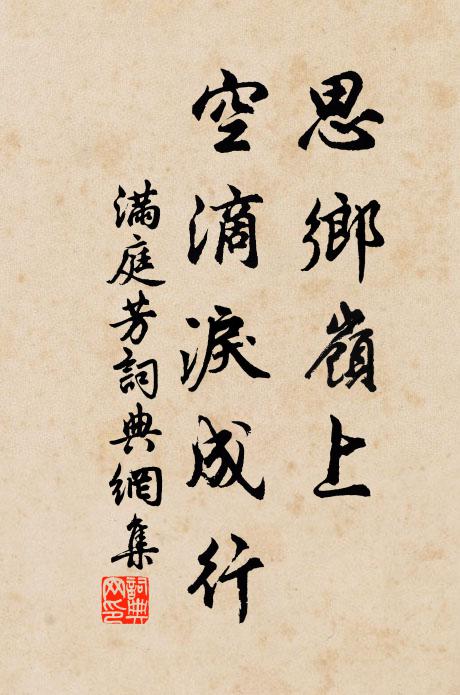 思鄉嶺上
空滴淚成行
滿庭芳詞典網集
詞典
网印